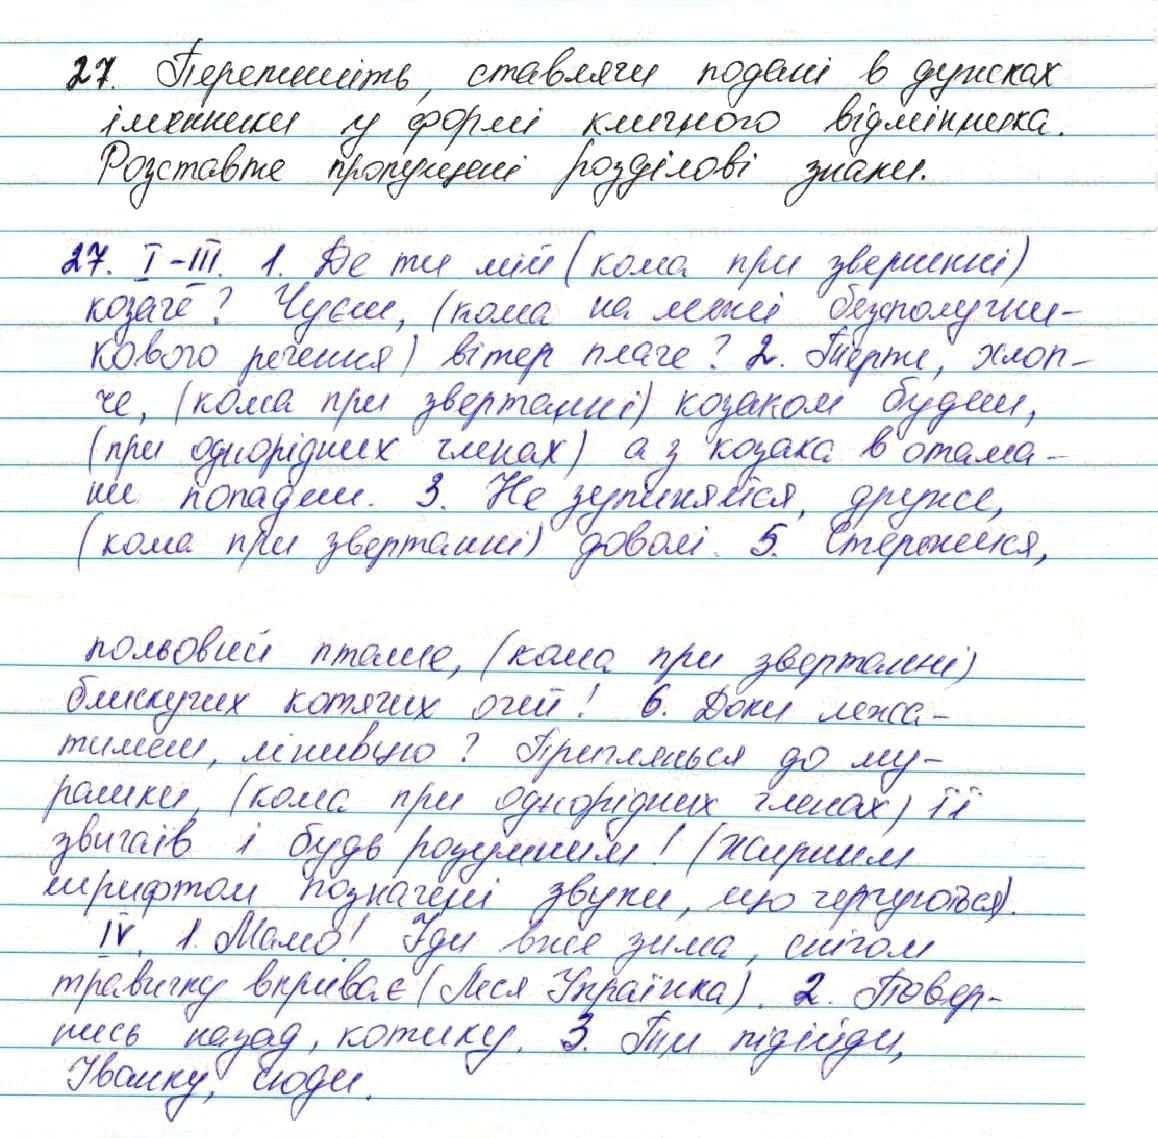 27. Перепишіть, ставлячи подані в дужках
іменники у формі кличного відмінника.
Розставте пропущені розділові знаки.
27. I-III. 1. Де ти мій (кома при звернинні)
козаче? Чуєш, (кома на межі безсполучни-
кового речення) вітер плаче? 2. Терпи, хлоп-
че, (кома при звертанні) козаком будеш,
(при однорідних членах) а з козака в отама-
ни попадеш. 3. Не зупиняйся, друже,
(кома при звертанні) доволі. 5. Стережися,
польовий пташе, (кома при звертанні)
блискучих котячих очей! 6. Доки лежа-
тимеш, лінивцю? Приглянься до му-
рашки, (кома при однорідних членах) її
звичаїв і будь розумним! (Жирним
шрифтом позначені звуки, що чергуються).
IV. 1. Мамо! Іди вже зима, снігом
травичку вкриває (Леся Українка). 2. Повер-
нись назад, котику. 3. Ти підійди,
Іванку, сюди.